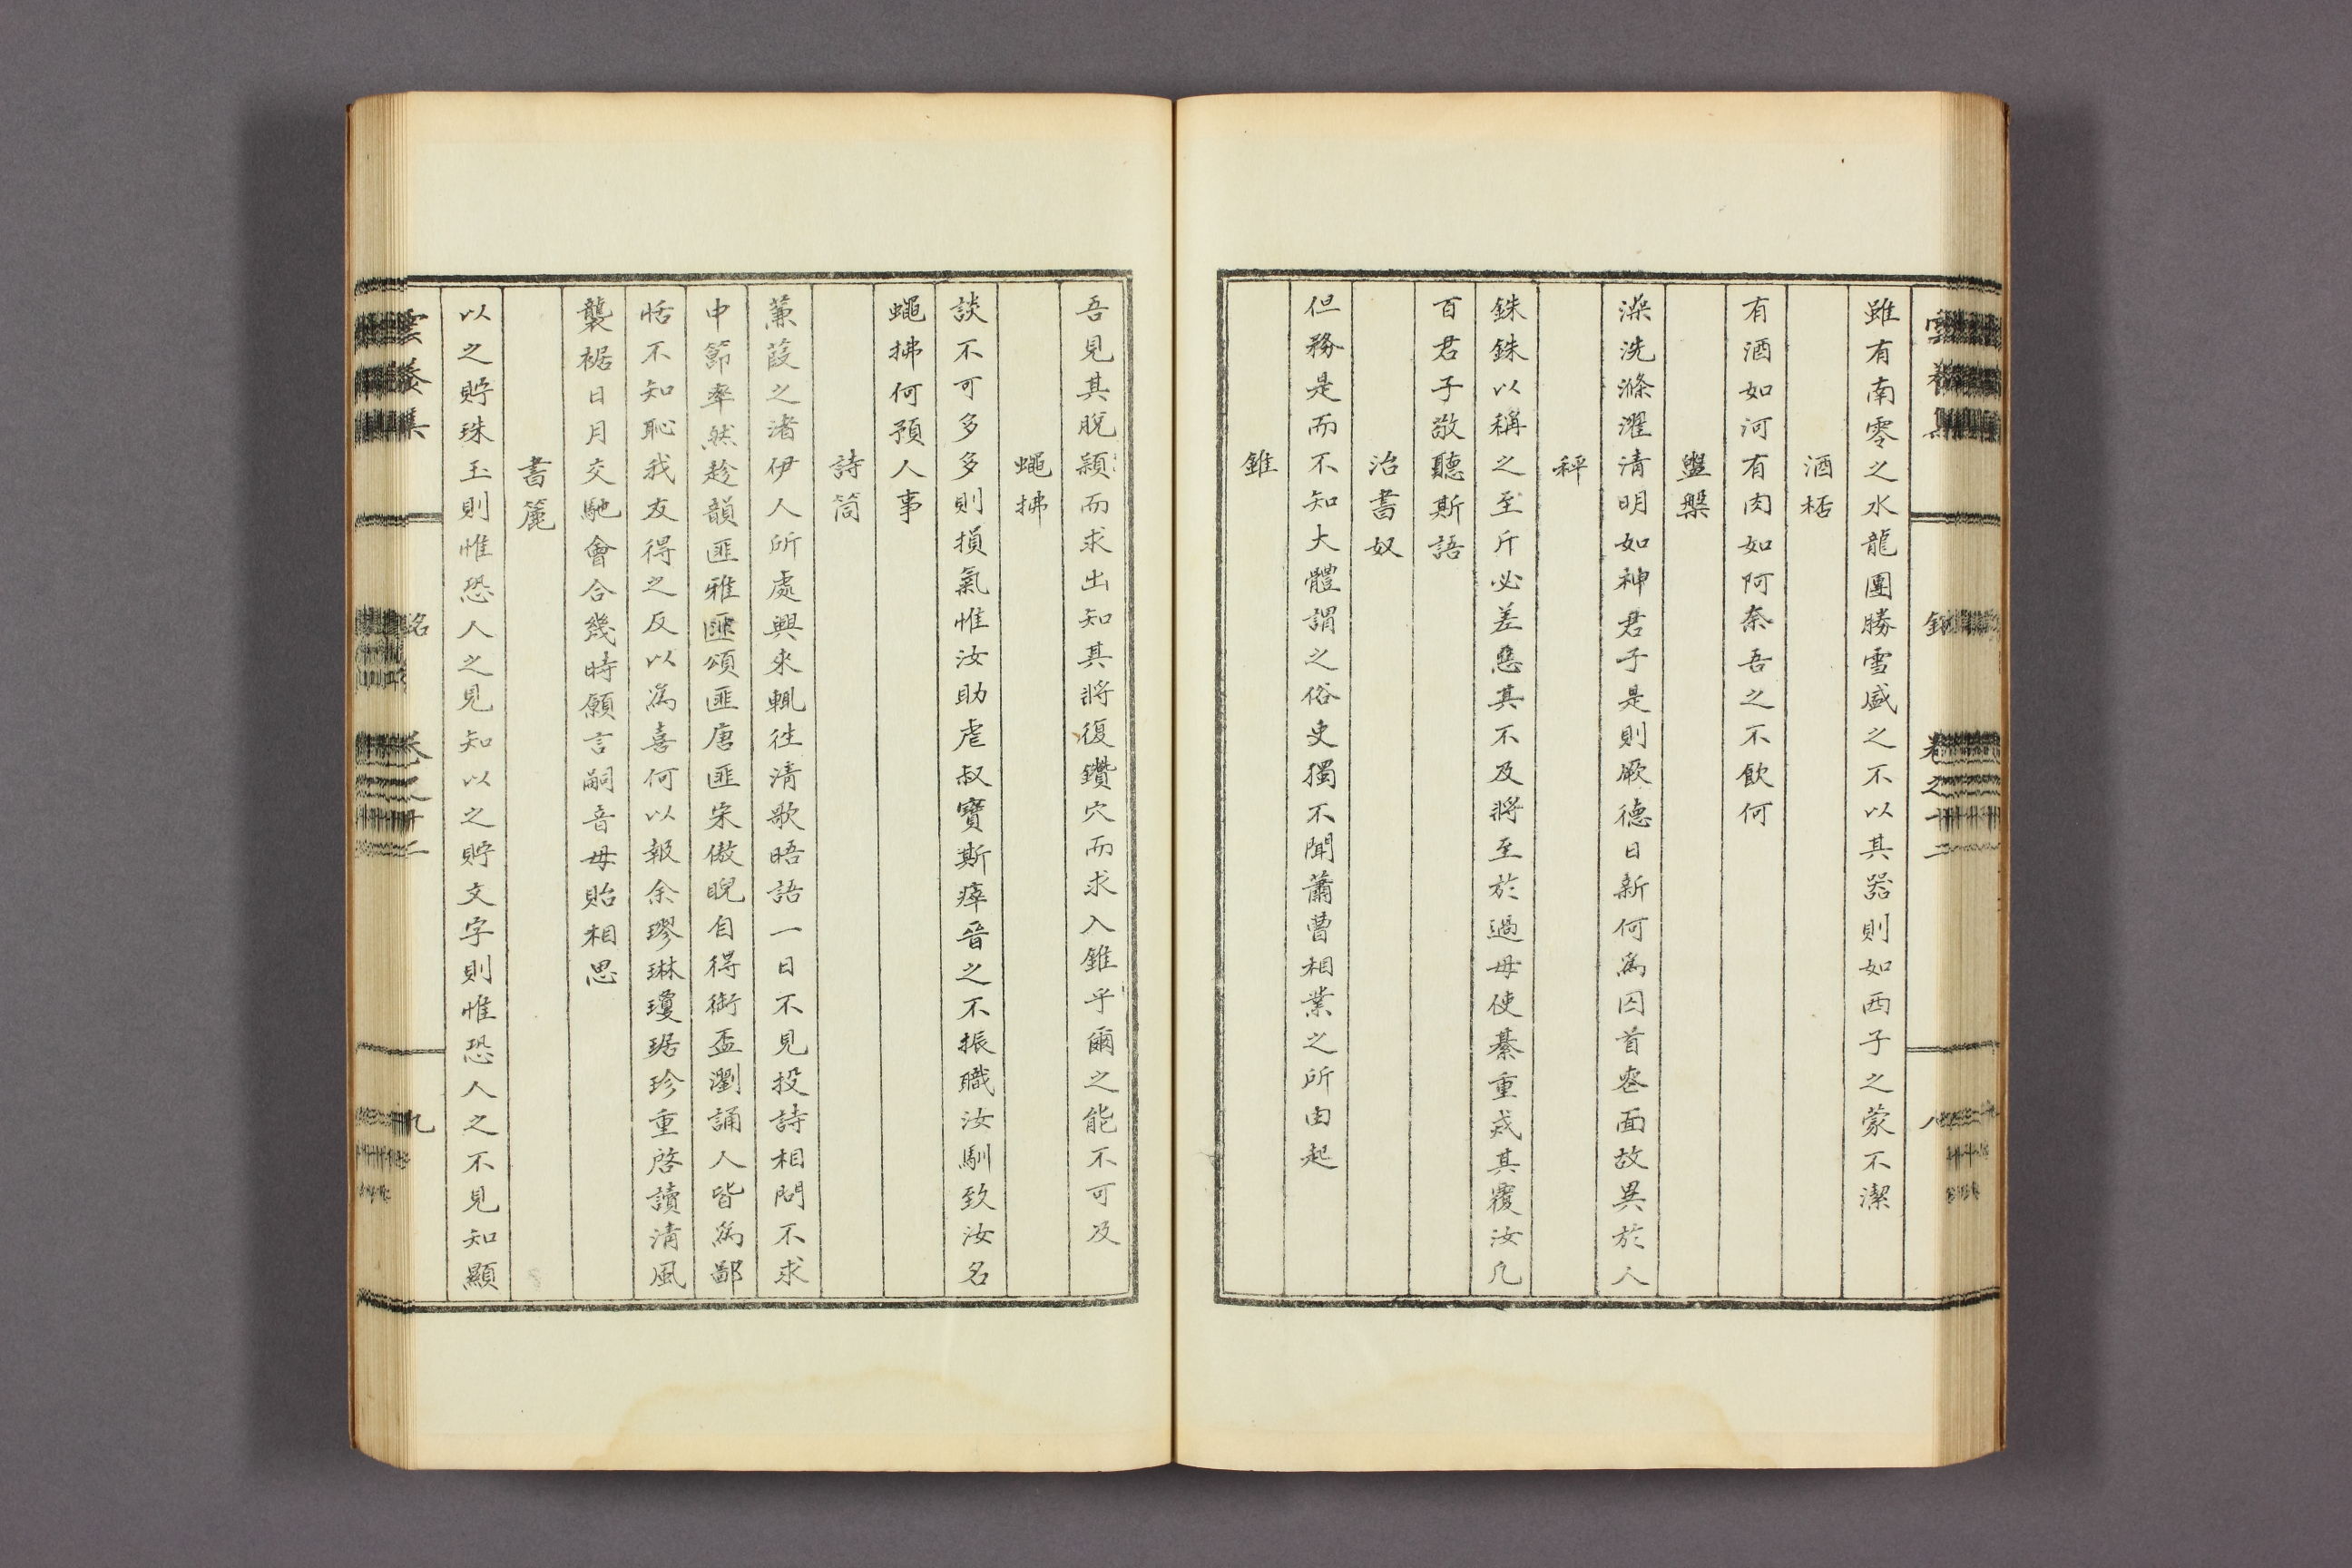 雖有南零之水龍團勝雪盛之不以其器則如西子之蒙不潔
酒桮
有酒如河有肉如阿奈吾之不飲何
盥槃
澡洗滌濯清明如神君子是則厥德日新何爲囚首喪面故異於人
秤
銖銖以稱之至斤必差惡其不及將至於過毋使綦重戒其覆汝凡
百君子敬聽斯語
治書奴
但務是而不知大體謂之俗吏獨不聞蕭曹相業之所由起
錐
吾見其脫穎而求出知其將復鑽穴而求入錐乎爾之能不可及
蠅拂
談不可多多則損氣惟汝助虐叔寶斯瘁晉之不振職汝馴致汝名
蠅拂何預人事
詩筒
蒹葭之渚伊人所處興來輒往清歌晤語一日不見投詩相問不求
中節率然趁韻匪雅匪頌匪唐匪宋傲睨自得銜盃瀏誦人皆爲鄙
恬不知恥我友得之反以爲喜何以報余璆琳瓊琚珍重啓讀清風
襲裾日月交馳會合幾時願言嗣音毋貽相思
書簏
以之貯珠玉則惟恐人之見知以之貯文字則惟恐人之不見知顯
銘
九